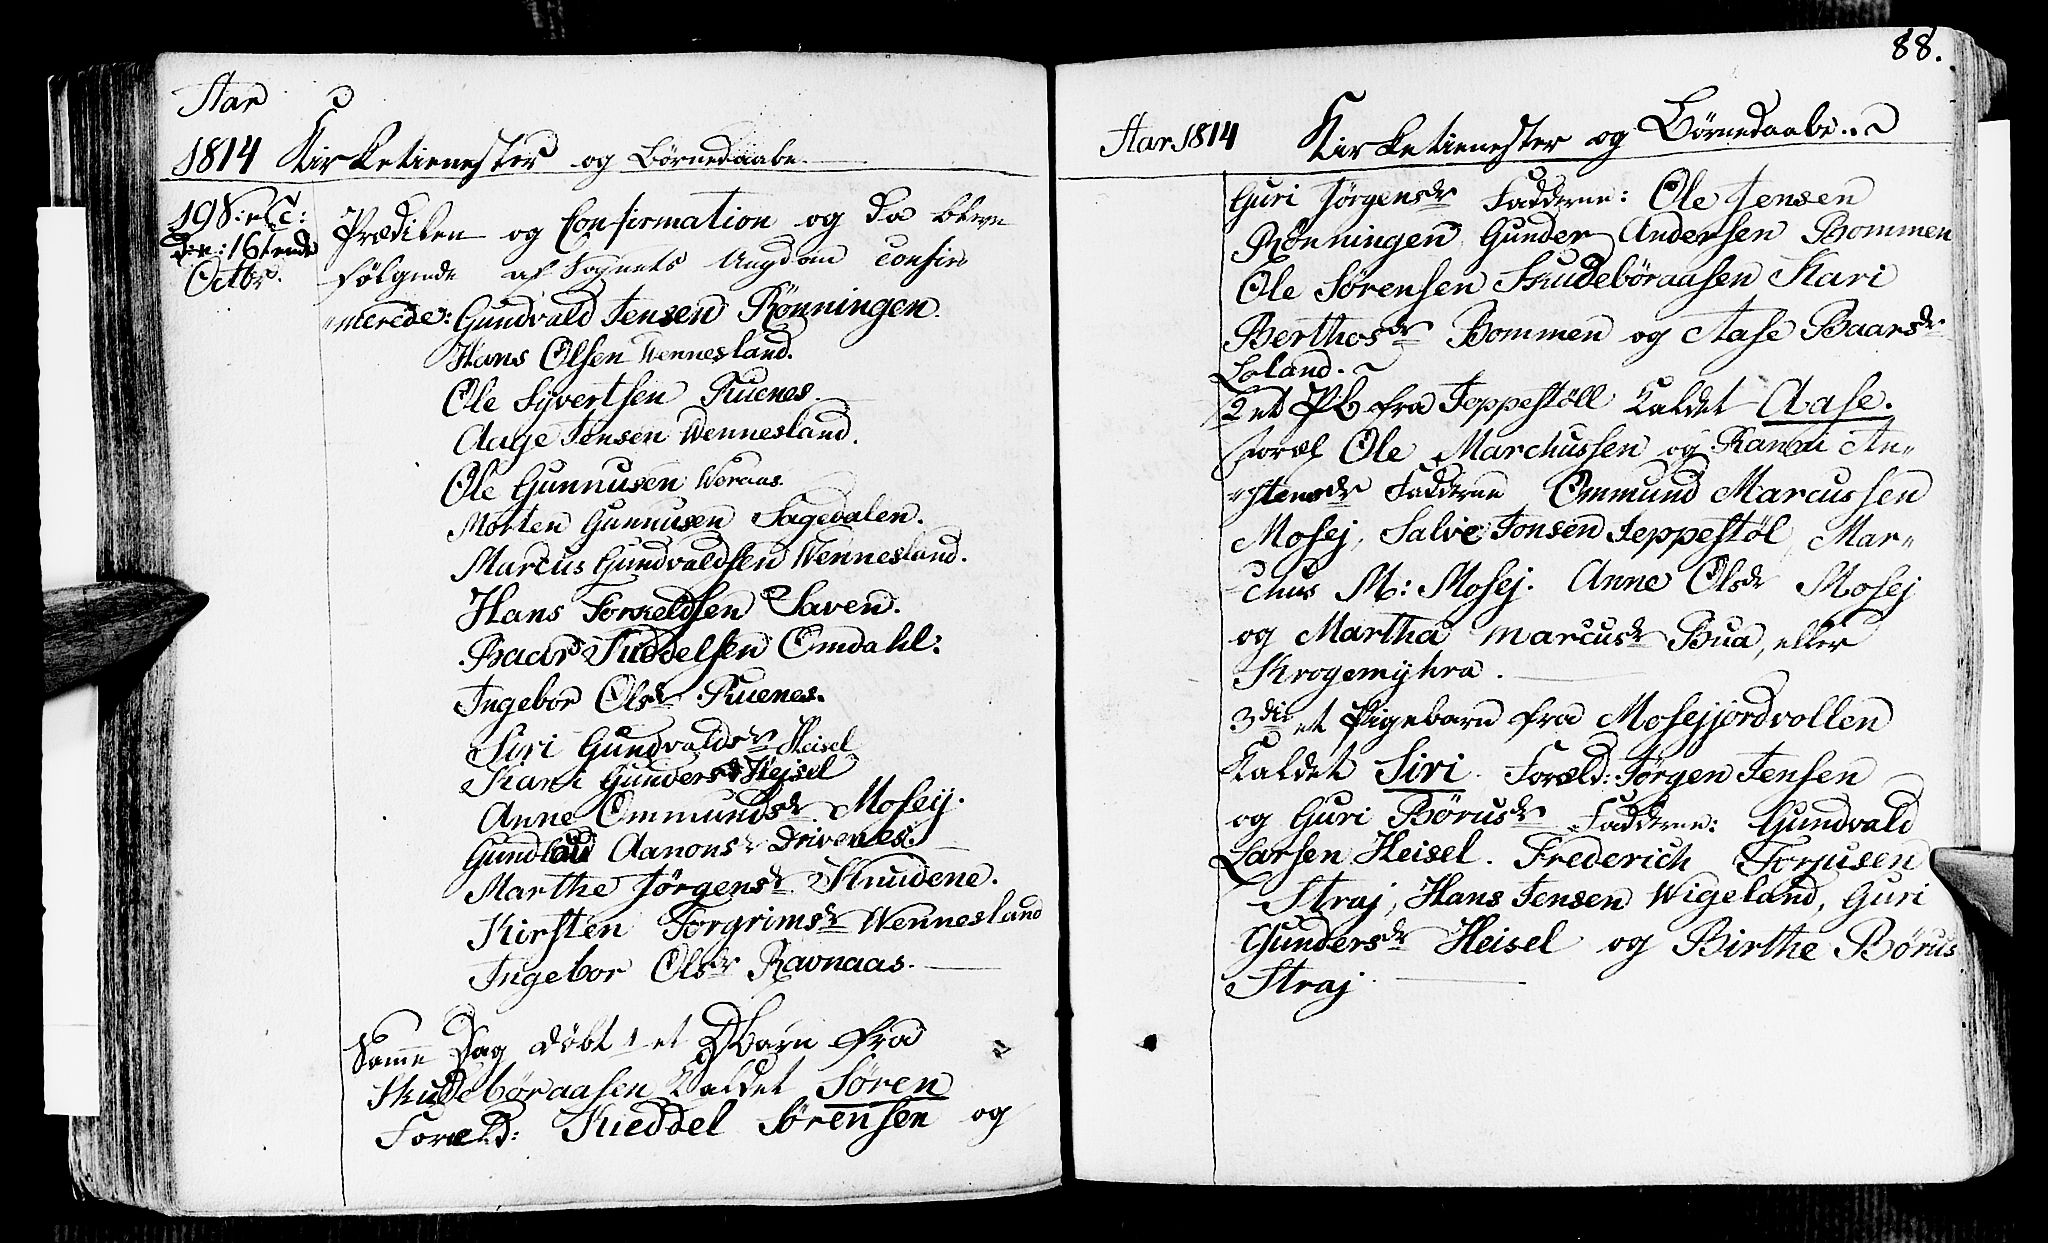 Aar
1814 Kirketienester og Börnedaabe.
19 S: e: T:
Den: 16tende
Octbr.
Prædiken og Confirmation og da bleve
følgende af Sognets Ungdom confir„
„merede: Gundvald Jensen Rönningen.
Hans Olsen Wennesland.
Ole Syvertsen Kuenes.
Aage Jensen Wennesland.
Ole Gunnusen Weraas.
Morten Gunnusen Sagedalen.
Marcus Gundvaldsen Wennesland.
Hans Torkeldsen Saven.
Baar Kiddelsen Omdahl.
Ingebor Olsdr Kuenes.
Siri Gundvaldsdr Heisel
Kari Gundersdr Hejsel
Anne Ommundsdr Mosej.
Gundlau Aanonsdr Drivenes.
Marthe Jörgensdr Knudene.
Kirsten Torgrimsdr Wennesland
Ingebor Olsdr Ravnaas.
Samme Dag döbt 1 et DBarn fra
Skudebøraasen Kaldet Søren
Foræld: Kieddel Sørensen og
88.
Aar 1814 Kirketienester og Börnedaabe.
Guri Jörgensdr Fadderne: Ole Jensen
Rönningen, Gunder Andersen Bommen
Ole Sørensen Skudebøraasen Kari
Berthosdr Bommen og Aase Baarsdr
Loland.
2 et PB fra Jeppestöll Kaldet Aase.
foræl Ole Marchussen og Ranni An„
„stensdr Fadderne Ommund Marcussen
Mosej, Salve Jonsen Jeppestøl, Mar„
„chus M: Mosej. Anne Olsdr Mosej
og Martha Marcusdr Bua, eller
Krogemyhra.
3die et Pigebarn fra Mosejjordvollen
Kaldet Siri. Foræld: Jørgen Jensen
og Guri Börusdr Fadderne: Gundvald
Larsen Heisel. Frederich Torjusen
Straj, Hans Jensen Wigeland, Guri
Gundersdr Heisel og Birthe Børus
Straj.